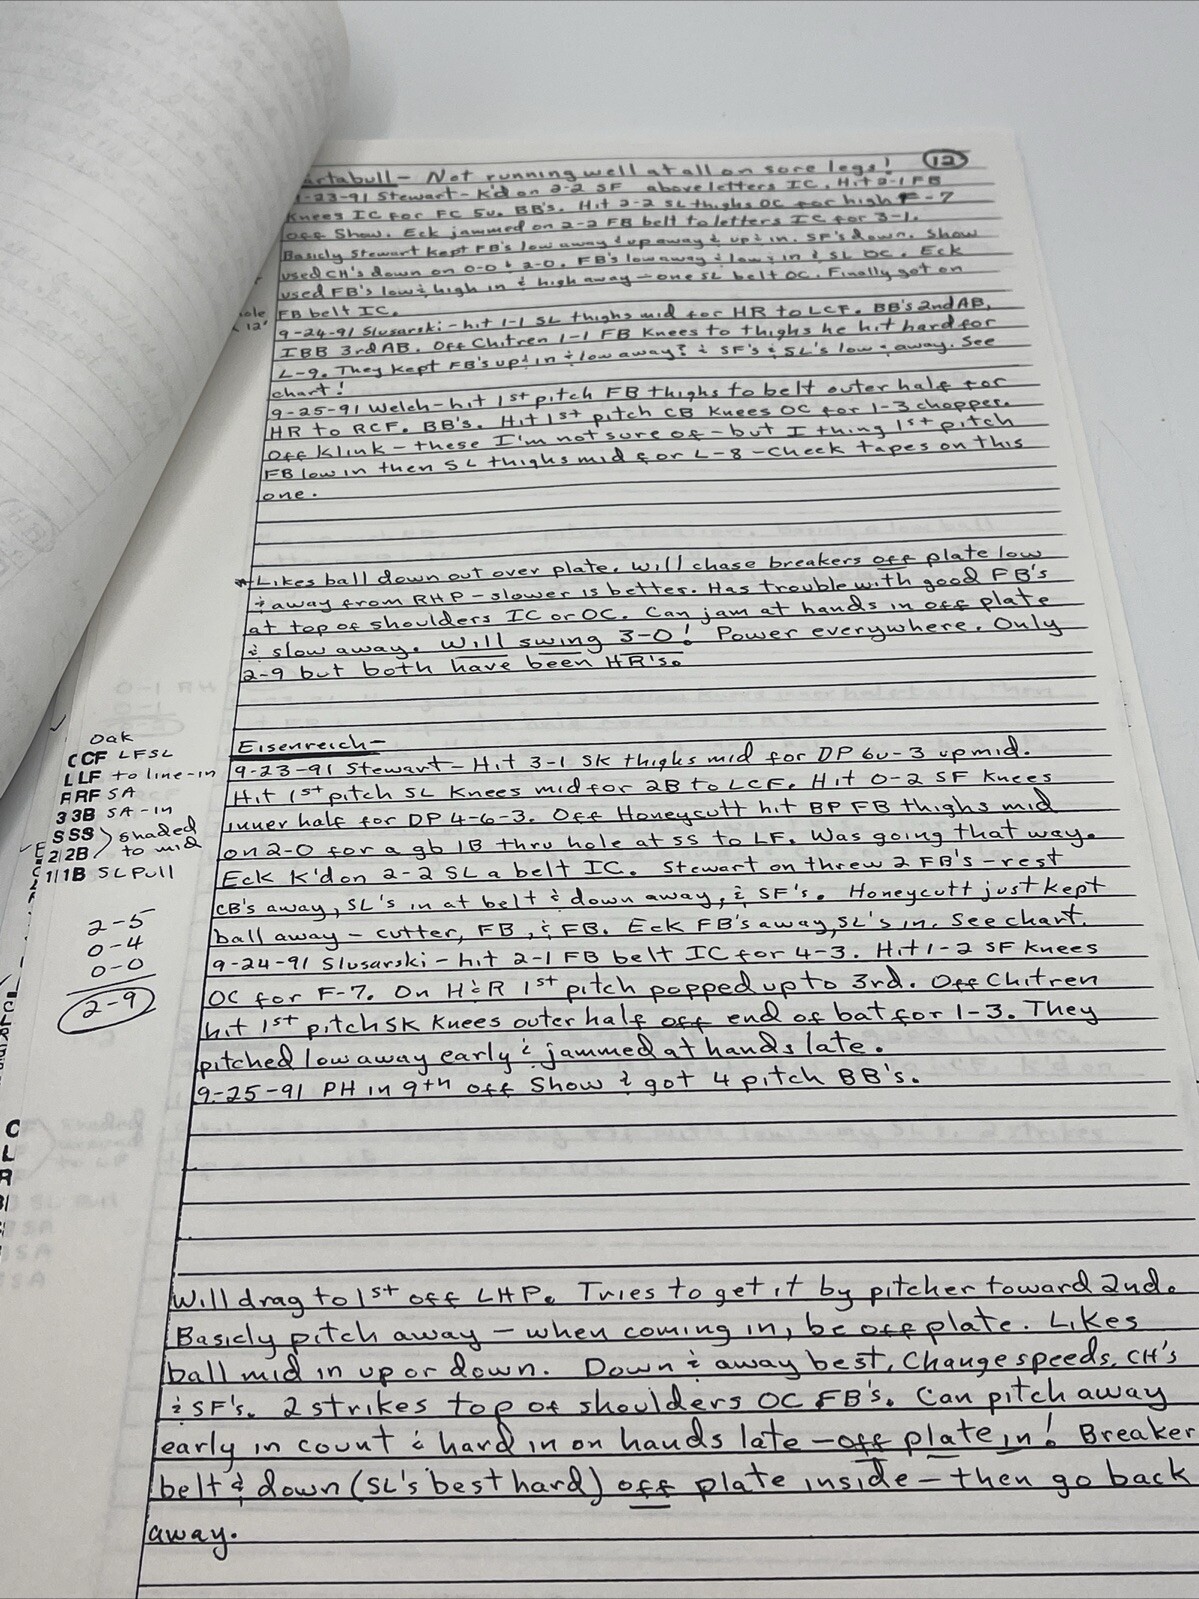 12
artabull - Not running well at all on sore legs!
-23-91 Stewart - K'd on 2-2 SF above letters IC. Hit 2-1 FB
Knees IC for FC 5u. BB's. Hit 2-2 SL thighs OC for high F-7
off Show. Eck jammed on 2-2 FB belt to letters IC for 3-1.
Basicly Stewart kept FB's low away & up away & up & in. SF's down. Show
used CH's down on 0-0 & 2-0. FB's low away & low & in & SL OC. Eck
used FB's low & high in & high away - one SL belt OC. Finally got on
FB belt IC.
9-24-91 Slusarski - hit 1-1 SL thighs mid for HR to LCF. BB's 2nd AB,
IBB 3rd AB. Off Chitren 1-1 FB Knees to thighs he hit hard for
L-9. They kept FB's up & in & low away? & SF's & SL's low & away. See
chart!
9-25-91 Welch - hit 1st pitch FB thighs to belt outer half for
HR to RCF. BB's. Hit 1st pitch CB Knees OC for 1-3 chopper.
Off Klink - these I'm not sure of - but I thing 1st pitch
FB low in then SL thighs mid for L-8 - check tapes on this
one.
ole
12'
*Likes ball down out over plate. Will chase breakers off plate low
& away from RHP - slower is better. Has trouble with good FB's
at top of shoulders IC or OC. Can jam at hands in off plate
& slow away. Will swing 3-0! Power everywhere. Only
2-9 but both have been HR's.
Oak
CCF LFSL
LLF to line-in
RRF SA
33B SA-in
SSS ) shaded
2B ) to mid
1B SL Pull
2-5
0-4
0-0
2-9
Eisenreich -
9-23-91 Stewart - Hit 3-1 SK thighs mid for DP 6u-3 up mid.
Hit 1st pitch SL Knees mid for 2B to LCF. Hit 0-2 SF Knees
inner half for DP 4-6-3. Off Honeycutt hit BP FB thighs mid
on 2-0 for a gb 1B thru hole at ss to LF. Was going that way.
Eck K'd on 2-2 SL a belt IC. Stewart on threw 2 FB's - rest
CB's away, SL's in at belt & down away, & SF's. Honeycutt just kept
ball away - cutter, FB, & FB. Eck FB's away, SL's in. See chart.
9-24-91 Slusarski - hit 2-1 FB belt IC for 4-3. Hit 1-2 SF Knees
OC for F-7. On H&R 1st pitch popped up to 3rd. Off Chitren
hit 1st pitch SK Knees outer half off end of bat for 1-3. They
pitched low away early & jammed at hands late.
9-25-91 PH in 9th off Show & got 4 pitch BB's.
Will drag to 1st off LHP. Tries to get it by pitcher toward 2nd.
Basicly pitch away - when coming in, be off plate. Likes
ball mid in up or down. Down & away best. Change speeds, CH's
& SF's. 2 strikes top of shoulders OC FB's. Can pitch away
early in count & hard in on hands late - off plate in! Breaker
belt & down (SL's best hard) off plate inside - then go back
away.